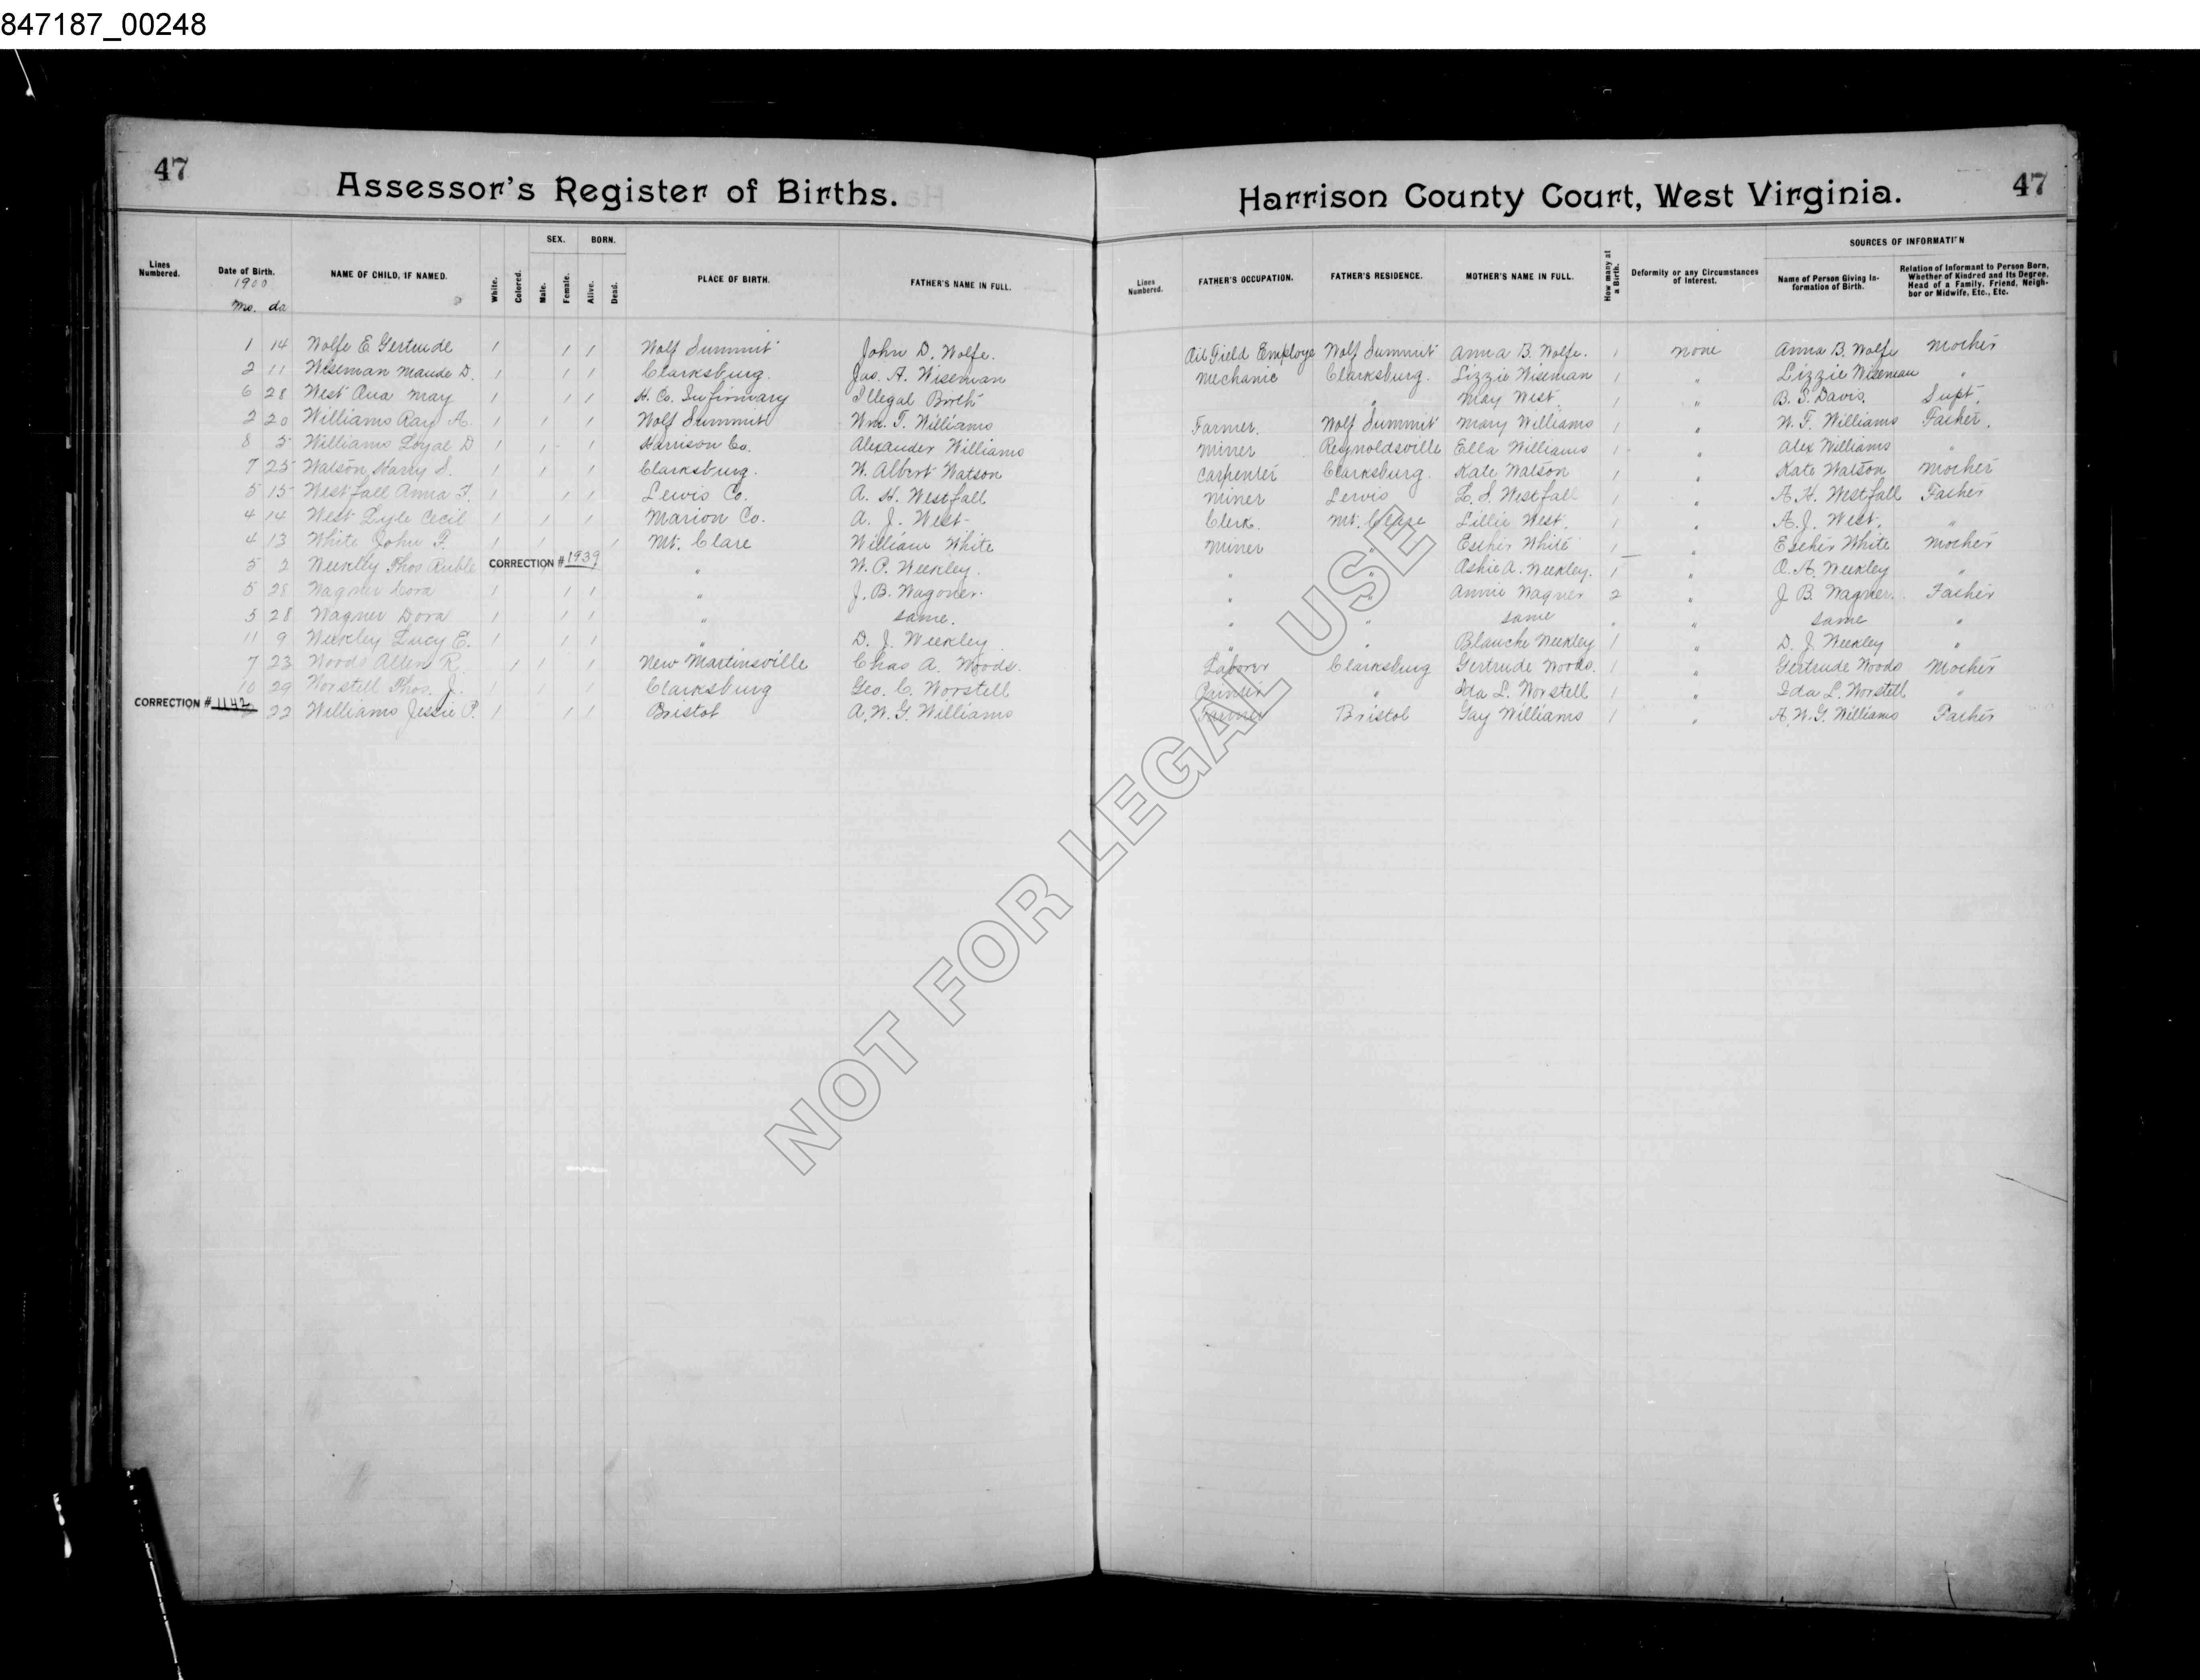 847187_00248
47
Assessor's Register of Births.
Harrison County Court, West Virginia.
47
Lines Numbered. Date of Birth. 1900 Mo. da NAME OF CHILD, IF NAMED. White. Colored. SEX. Male. Female. BORN. Alive. Dead. PLACE OF BIRTH. FATHER'S NAME IN FULL. Lines Numbered. FATHER'S OCCUPATION. FATHER'S RESIDENCE. MOTHER'S NAME IN FULL. How many at a Birth. Deformity or any Circumstances of Interest. SOURCES OF INFORMATION Name of Person Giving Information of Birth. Relation of Informant to Person Born, Whether of Kindred and Its Degree, Head of a Family, Friend, Neighbor or Midwife, Etc., Etc.
1 14 Wolfe E Gertrude 1 1 1 Wolf Summit John D. Wolfe. Oil Field Employe Wolf Summit Anna B. Wolfe. 1 none Anna B. Wolfe Mother
2 11 Wiseman Maude D. 1 1 1 Clarksburg. Jas. A. Wiseman Mechanic Clarksburg. Lizzie Wiseman 1 " Lizzie Wiseman "
6 28 West Ona May 1 1 1 H. Co. Infirmary Illegal Birth " May West. 1 " B. S. Davis. Supt.
2 20 Williams Ray A. 1 1 1 Wolf Summit Wm. T. Williams Farmer. Wolf Summit Mary Williams 1 " W. T. Williams Father.
8 5 Williams Loyal D 1 1 1 Harrison Co. Alexander Williams Miner Reynoldsville Ella Williams 1 " Alex Williams "
7 25 Watson Harry S. 1 1 1 Clarksburg. W. Albert Watson Carpenter Clarksburg. Kate Watson 1 " Kate Watson Mother
5 15 Westfall Anna F. 1 1 1 Lewis Co. A. H. Westfall Miner Lewis L. S. Westfall 1 " A. H. Westfall Father
4 14 West Lyle Cecil 1 1 1 Marion Co. A. J. West Clerk. Mt. Clare Lillie West. 1 " A. J. West. "
4 13 White John P. 1 1 1 Mt. Clare William White Miner " Esther White 1 " Esther White Mother
5 2 Weekley Thos Ruble CORRECTION # 1939 " W. P. Weekley. " " Oshie A. Weekley. 1 " O. A. Weekley "
5 28 Wagner Cora 1 1 1 " J. B. Wagoner. " " Annie Wagner 2 " J. B. Wagner. Father
5 28 Wagner Dora 1 1 1 " same. " " same " " same "
11 9 Weekley Lucy E. 1 1 1 " D. J. Weekley " " Blanche Weekley 1 " D. J. Weekley "
7 23 Woods Allen R. 1 1 1 New Martinsville Chas A. Woods. Laborer Clarksburg Gertrude Woods. 1 " Gertrude Woods Mother
10 29 Worstell Thos. J. 1 1 1 Clarksburg Geo. C. Worstell Painter " Ida L. Worstell 1 " Ida L. Worstell "
CORRECTION # 1142 22 Williams Jessie P. 1 1 1 Bristol A. W. G. Williams Farmer Bristol Gay Williams 1 " A. W. G. Williams Father
NOT FOR LEGAL USE